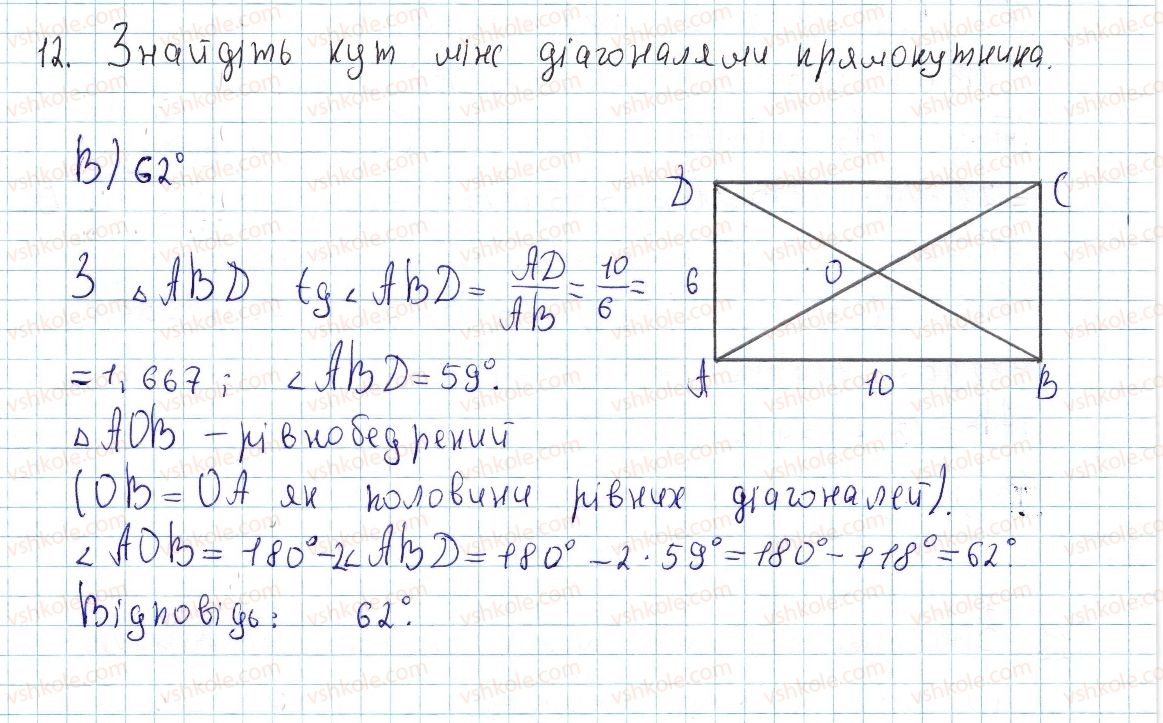 12. Знайдіть кут між діагоналями прямокутника.
В) 62°
З △ABD tg∠ABD = AD/AB = 10/6 =
= 1,667; ∠ABD = 59°.
△AOB – рівнобедрений
(OB = OA як половини рівних діагоналей).
∠AOB = 180° – 2∠ABD = 180° – 2 · 59° = 180° – 118° = 62°.
Відповідь: 62°.
D
C
O
6
A
10
B
vshkole.com